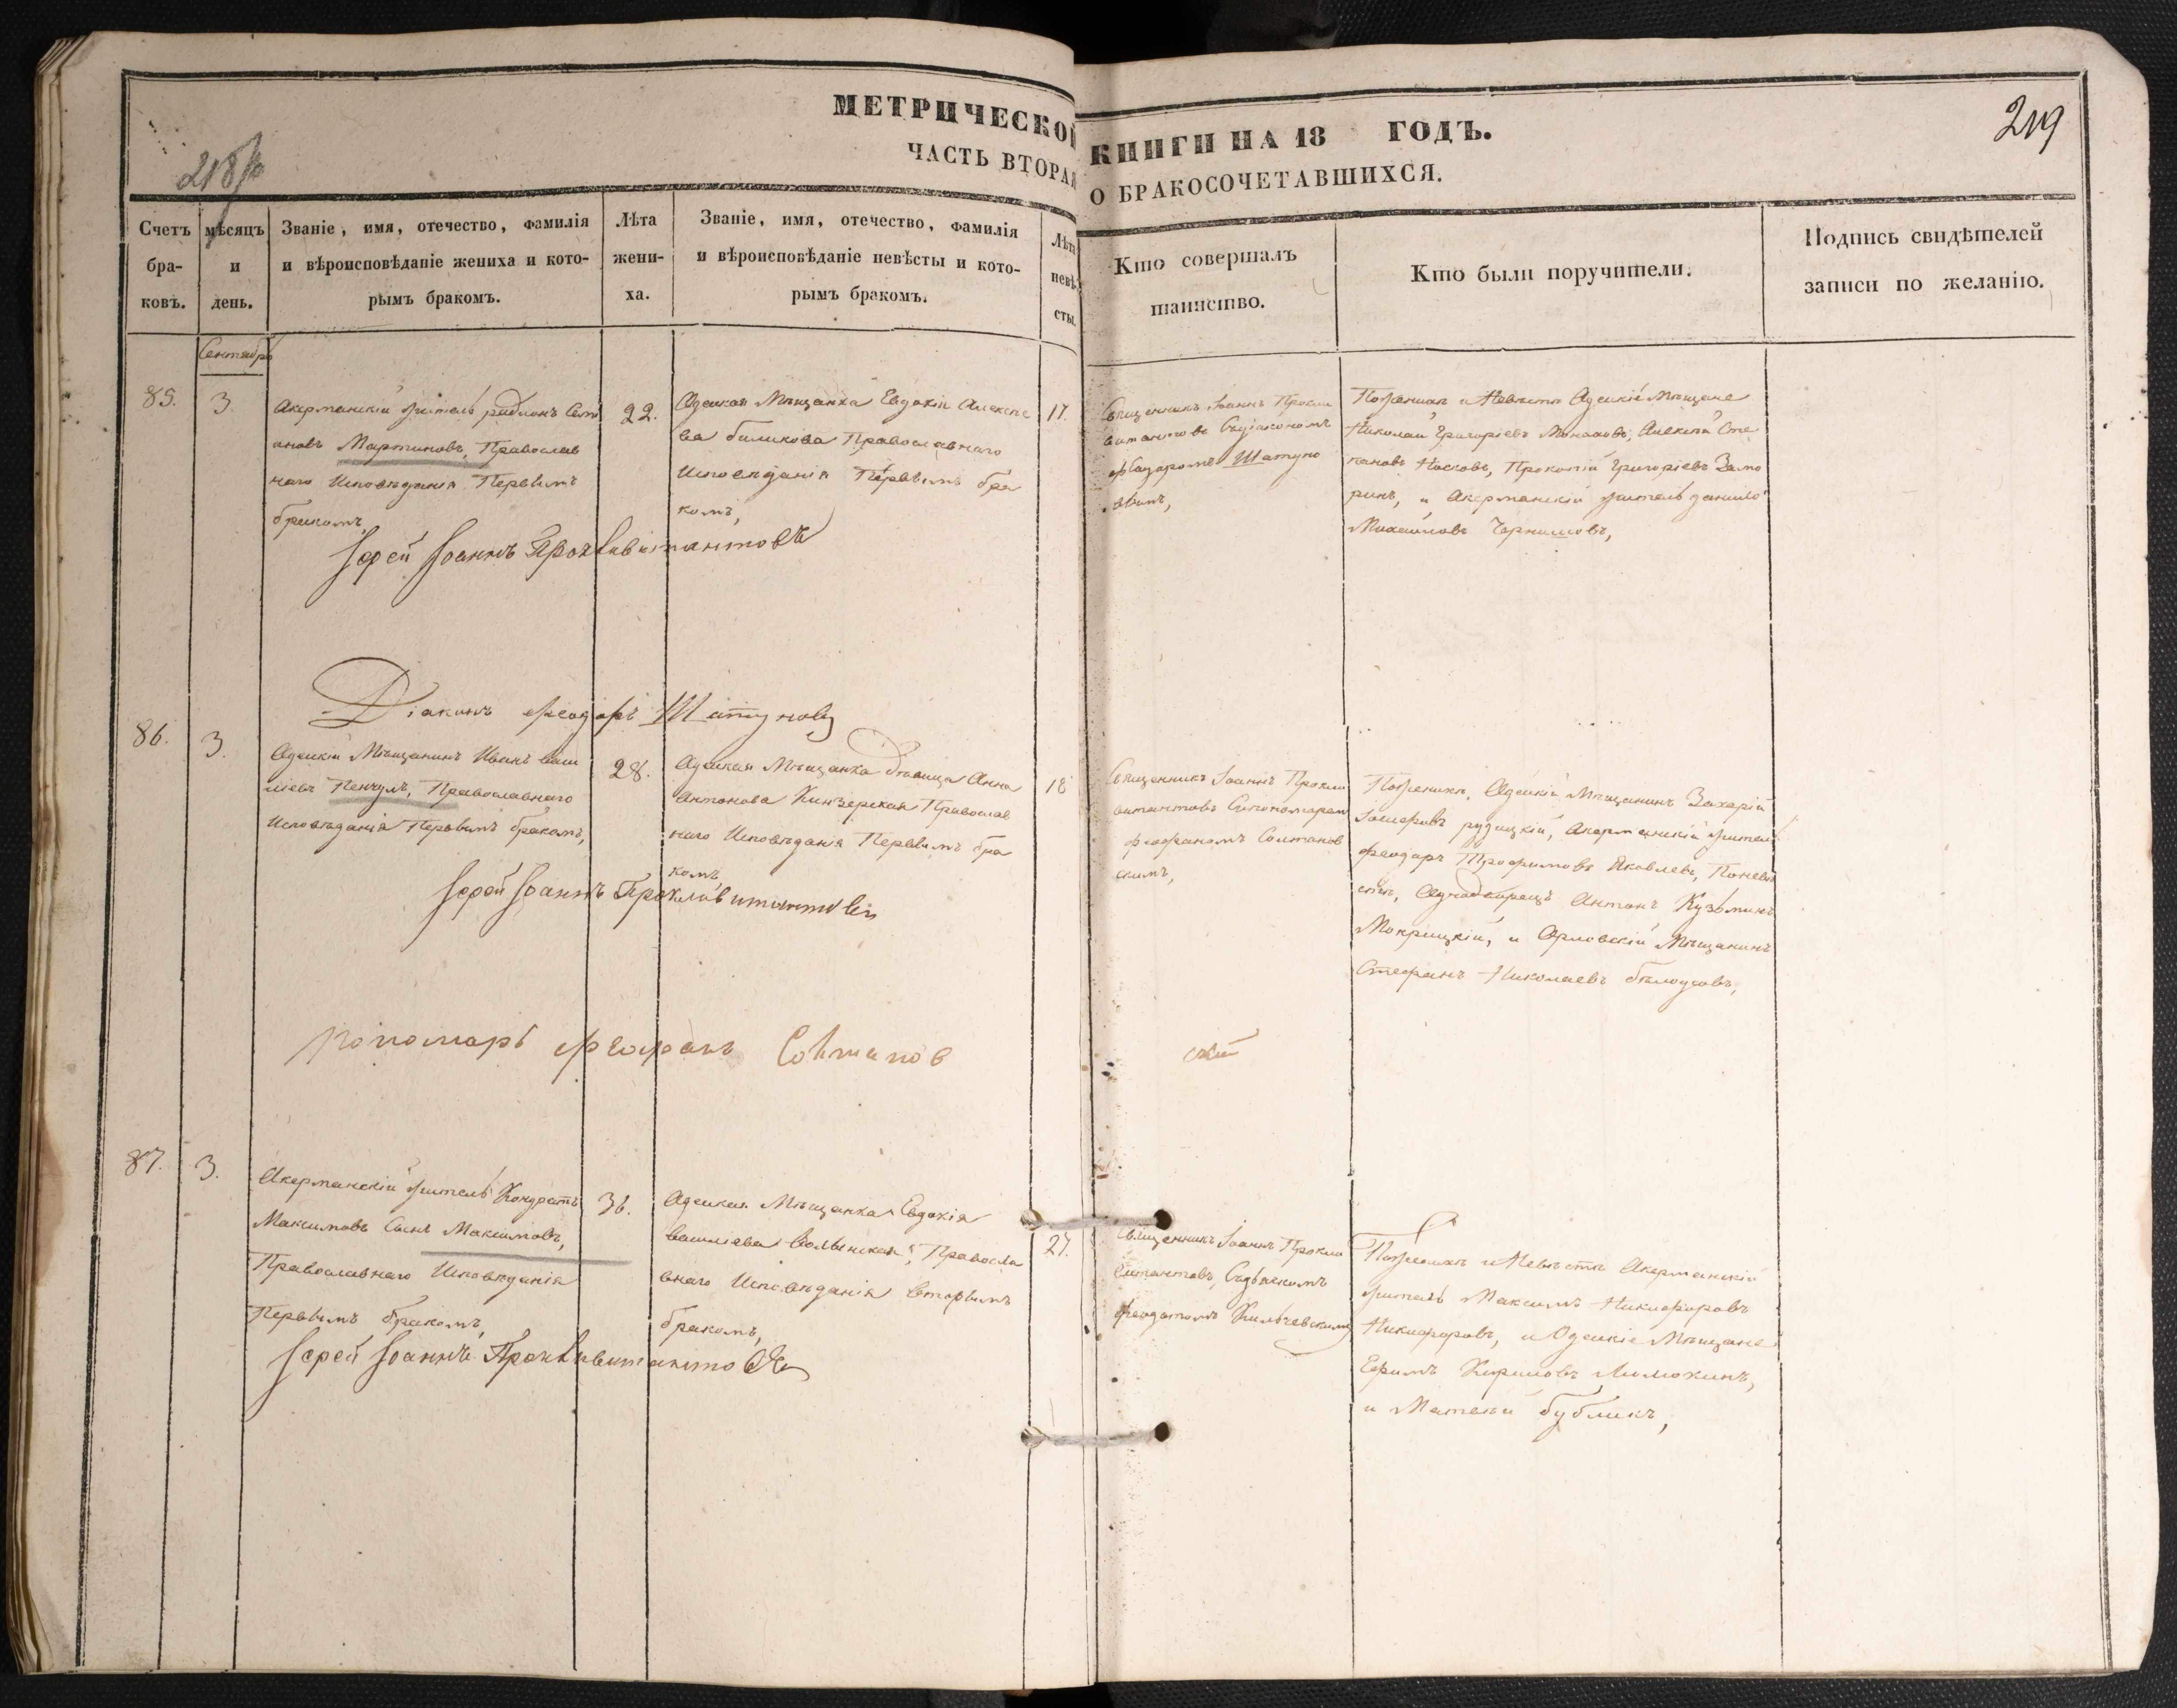 МЕТРИЧЕСКОЙ КНИГИ НА 18 ГОДЪ.
ЧАСТЬ ВТОРАЯ О БРАКОСОЧЕТАВШИХСЯ.
219
Счетъ бра-ковъ.
мѣсяцъ и день.
Званіе, имя, отечество, фамилія
и вѣроисповѣданіе жениха и кото-
рымъ бракомъ.
Лѣта
жени-
ха.
Званіе, имя, отечество, фамилія
и вѣроисповѣданіе невѣсты и кото-
рымъ бракомъ.
Лѣта
невѣ-
сты.
Кто совершалъ
таинство.
Кто были поручители.
Подпись свидѣтелей
записи по желанію.
Сентябрь
85.
3.
Акерманскій житель
Мартиновъ, Православ
наго Исповѣданія Первымъ
бракомъ,
22.
Одеская Мѣщанка Евдокія Алексѣе
ва Православнаго
Исповѣданія Первымъ бра
комъ,
17.
Священникъ Іоаннъ Прокли
витантовъ Сдіакономъ
Шатуно
вымъ,
Поженихѣ и Невѣстѣ Одескіе Мѣщане
Николай Григоріевъ Алексѣй Сте
пановъ Носковъ, Прокопій Григоріевъ
и Акерманскій житель
Михайловъ
Іерей Іоаннъ Проклвитантовъ
Діаконъ Феодоръ Шатуновъ
86.
3.
Одескій Мѣщанинъ Иванъ Васи
ліевъ Пенчулъ, Православнаго
Исповѣданія Первымъ бракомъ,
28.
Одеская Мѣщанка дѣвица Анна
Антонова Православ
наго Исповѣданія Первымъ бра
комъ
18
Священникъ Іоаннъ Прокли
витантовъ Спономаремъ
Феофаномъ Солтанов
скимъ,
Поженихѣ, Одескій Мѣщанинъ Захарій
Іосифовъ рудицкій, Акерманскій житель
Феодоръ Трофимовъ Яковлевъ, Поневѣ
стѣ, Антонъ Кузьминъ
Мокрицкій, и Орловскій Мѣщанинъ
Стефанъ Николаевъ бѣлоусовъ,
Іерей Іоаннъ Проклвитантовъ
Пономарь Феофанъ Солтанов
скій
87.
3.
Акерманскій житель Кондратъ
Максимовъ Сынъ Максимовъ,
Православнаго Исповѣданія
Первымъ бракомъ,
36.
Одеская Мѣщанка Евдокія
Василіева Волынская, Правосла
внаго Исповѣданія вторымъ
бракомъ,
27.
Священникъ Іоаннъ Прокли
витантовъ, Сдьячкомъ
Феодотомъ
Поженихѣ и Невѣстѣ Акерманскій
житель Максимъ Никифоровъ
Никифоровъ, и Одескіе Мѣщане
Ефимъ Кириловъ
и Матвѣй бубликъ,
Іерей Іоаннъ Проклвитантовъ